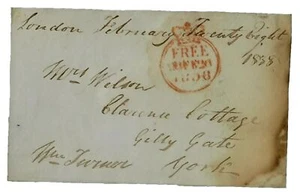 London February Twenty Eight
1838
FREE
1838
Mrs Wilson
Clarence Cottage
Gilly Gate
York
Wm Turner